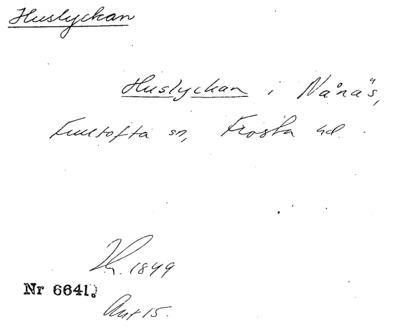 Huslyckan
Huslyckan i Nånäs,
Fulltofta sn, Frosta hd.
1849
Nr 6641.
Ant 15.